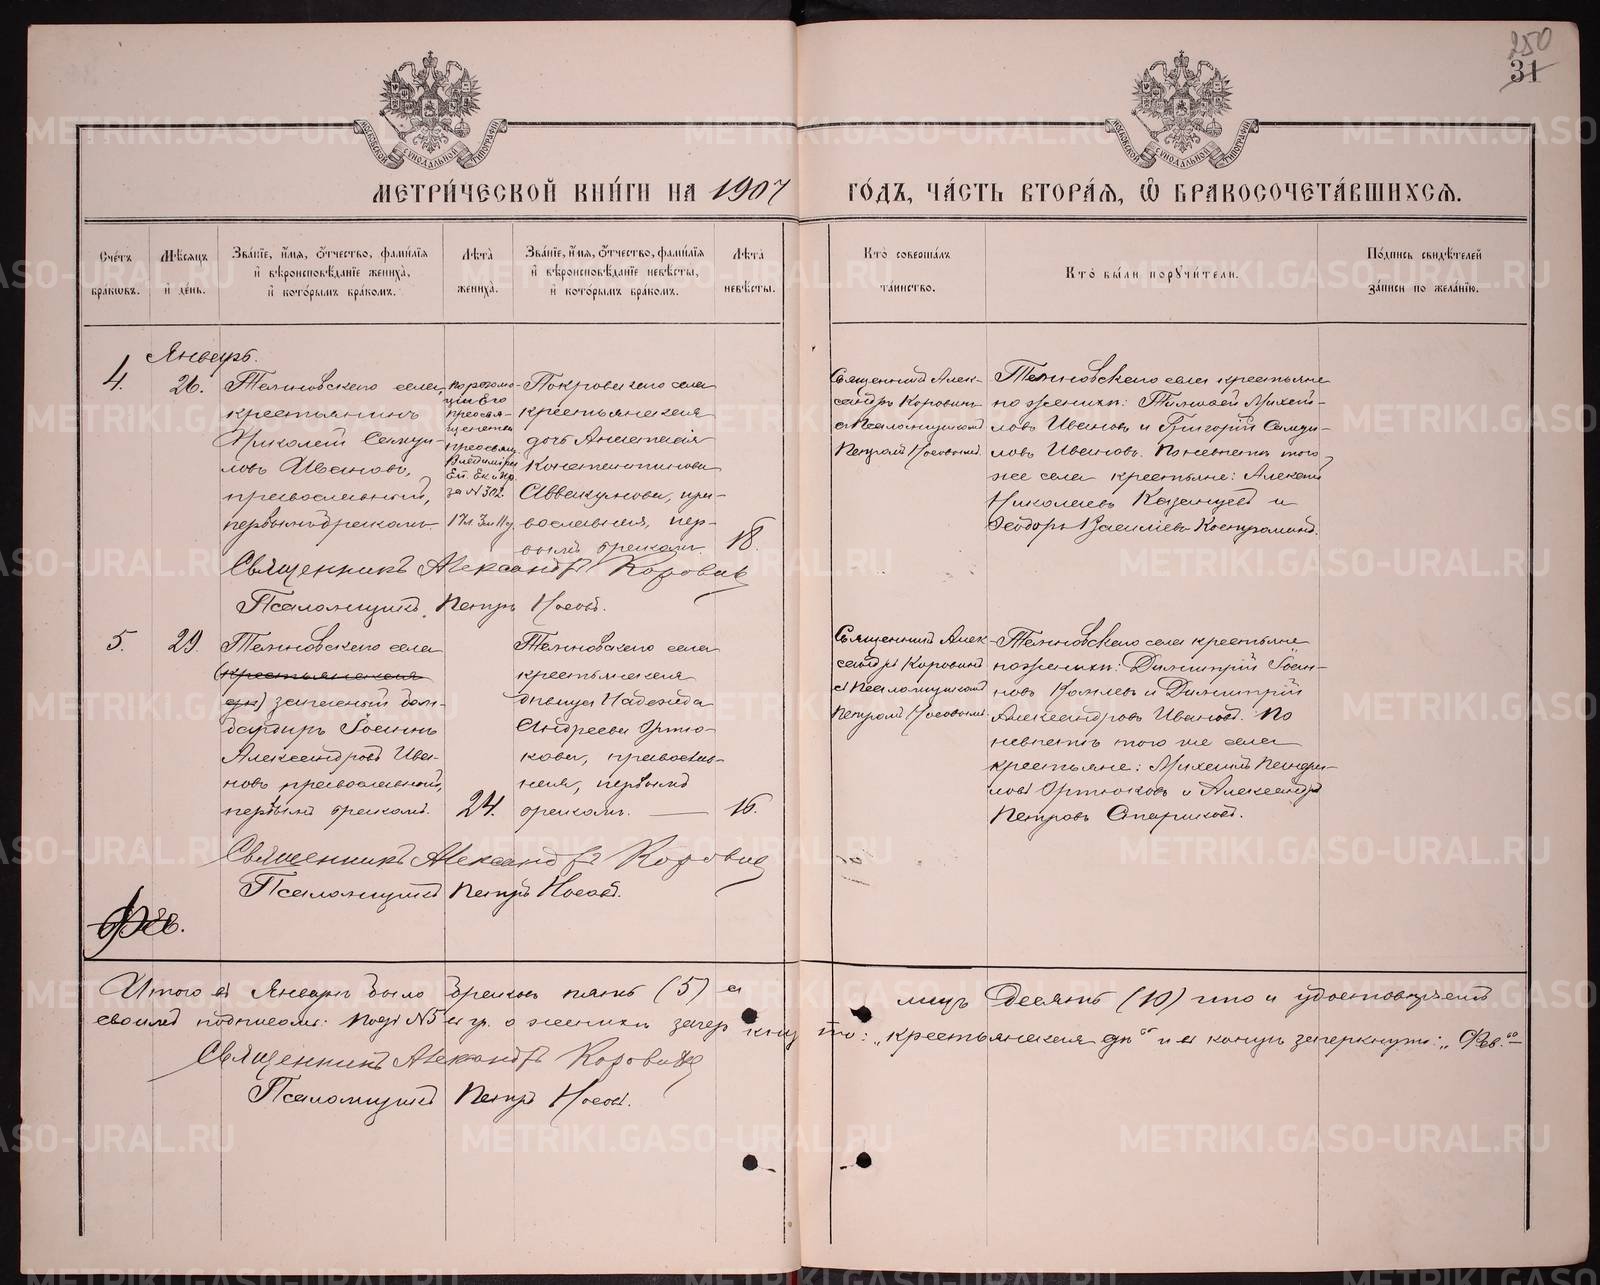 250
31
МЕТРИ́ЧЕСКОЙ КНИ́ГИ НА 1907 ГО́ДЪ, ЧА́СТЬ ВТОРА́Ѧ, Ѽ БРАКОСОЧЕТА́ВШИХСѦ.
Сче́тъ
бра́ковъ.
Мѣ́сѧцъ
и҆ де́нь.
Зва́нїе, и҆́мѧ, ѻ҆́тчество, фами́лїѧ
и҆ вѣроисповѣ́данїе жениха̀,
и҆ кото́рымъ бра́комъ.
Лѣ́та
жениха̀.
Зва́нїе, и҆́мѧ, ѻ҆́тчество, фами́лїѧ
и҆ вѣроисповѣ́данїе невѣ́сты,
и҆ кото́рымъ бра́комъ.
Лѣ́та
невѣ́сты.
Кто̀ соверша́лъ
та́инство.
Кто̀ бы́ли порꙋчи́тели.
По́дпись свидѣ́телей
за́писи по жела́нїю.
Январь.
4.
26.
Темновскаго села,
крестьянинъ
Николай Самуи-
ловъ Ивановъ,
православный,
первымъ бракомъ
Его
преосвя-
за № 302.
Покровскаго села
крестьянская
дочь Анастасія
Константинова
Аввакумова, пра-
вославная, пер-
вымъ бракомъ.
18.
Священникъ Алек-
сандръ Коровинъ
съ Псаломщикомъ
Петромъ Носовымъ.
Темновскаго села крестьяне
по женихѣ: Тимофей Михай-
ловъ Ивановъ и Григорій Самуи-
ловъ Ивановъ. По невѣстѣ того
же села крестьяне: Алексѣй
Николаевъ Казанцевъ и
Ѳеодоръ Василіевъ Костроминъ.
Священникъ Александръ Коровинъ
Псаломщикъ Петръ Носовъ.
5.
29.
Темновскаго села
(крестьянская
дч) запасный бом-
бардиръ Іоаннъ
Александровъ Ива-
новъ, православный,
первымъ бракомъ.
24.
Темновскаго села
крестьянская
дѣвица Надежда
Андреева Ортю-
кова, православ-
ная, первымъ
бракомъ.
16.
Священникъ Алек-
сандръ Коровинъ
съ Псаломщикомъ
Петромъ Носовымъ.
Темновскаго села крестьяне
по женихѣ: Димитрій Іоан-
новъ и Димитрій
Александровъ Ивановъ. По
невѣстѣ того же села
крестьяне: Михаилъ Гаври-
ловъ Ортюковъ и Александръ
Петровъ Стариковъ.
Священникъ Александръ Коровинъ
Псаломщикъ Петръ Носовъ.
Фев.
Итого въ Январѣ было браковъ пять (5) а лицъ десять (10) что и удостовѣряемъ
своимъ подписомъ: Подъ №5 въ гр. о женихѣ зачеркнуто: „крестьянская дч" и въ концѣ зачеркнуто: „Фев."
Священникъ Александръ Коровинъ
Псаломщикъ Петръ Носовъ.
METRIKI.GASO-URAL.RU